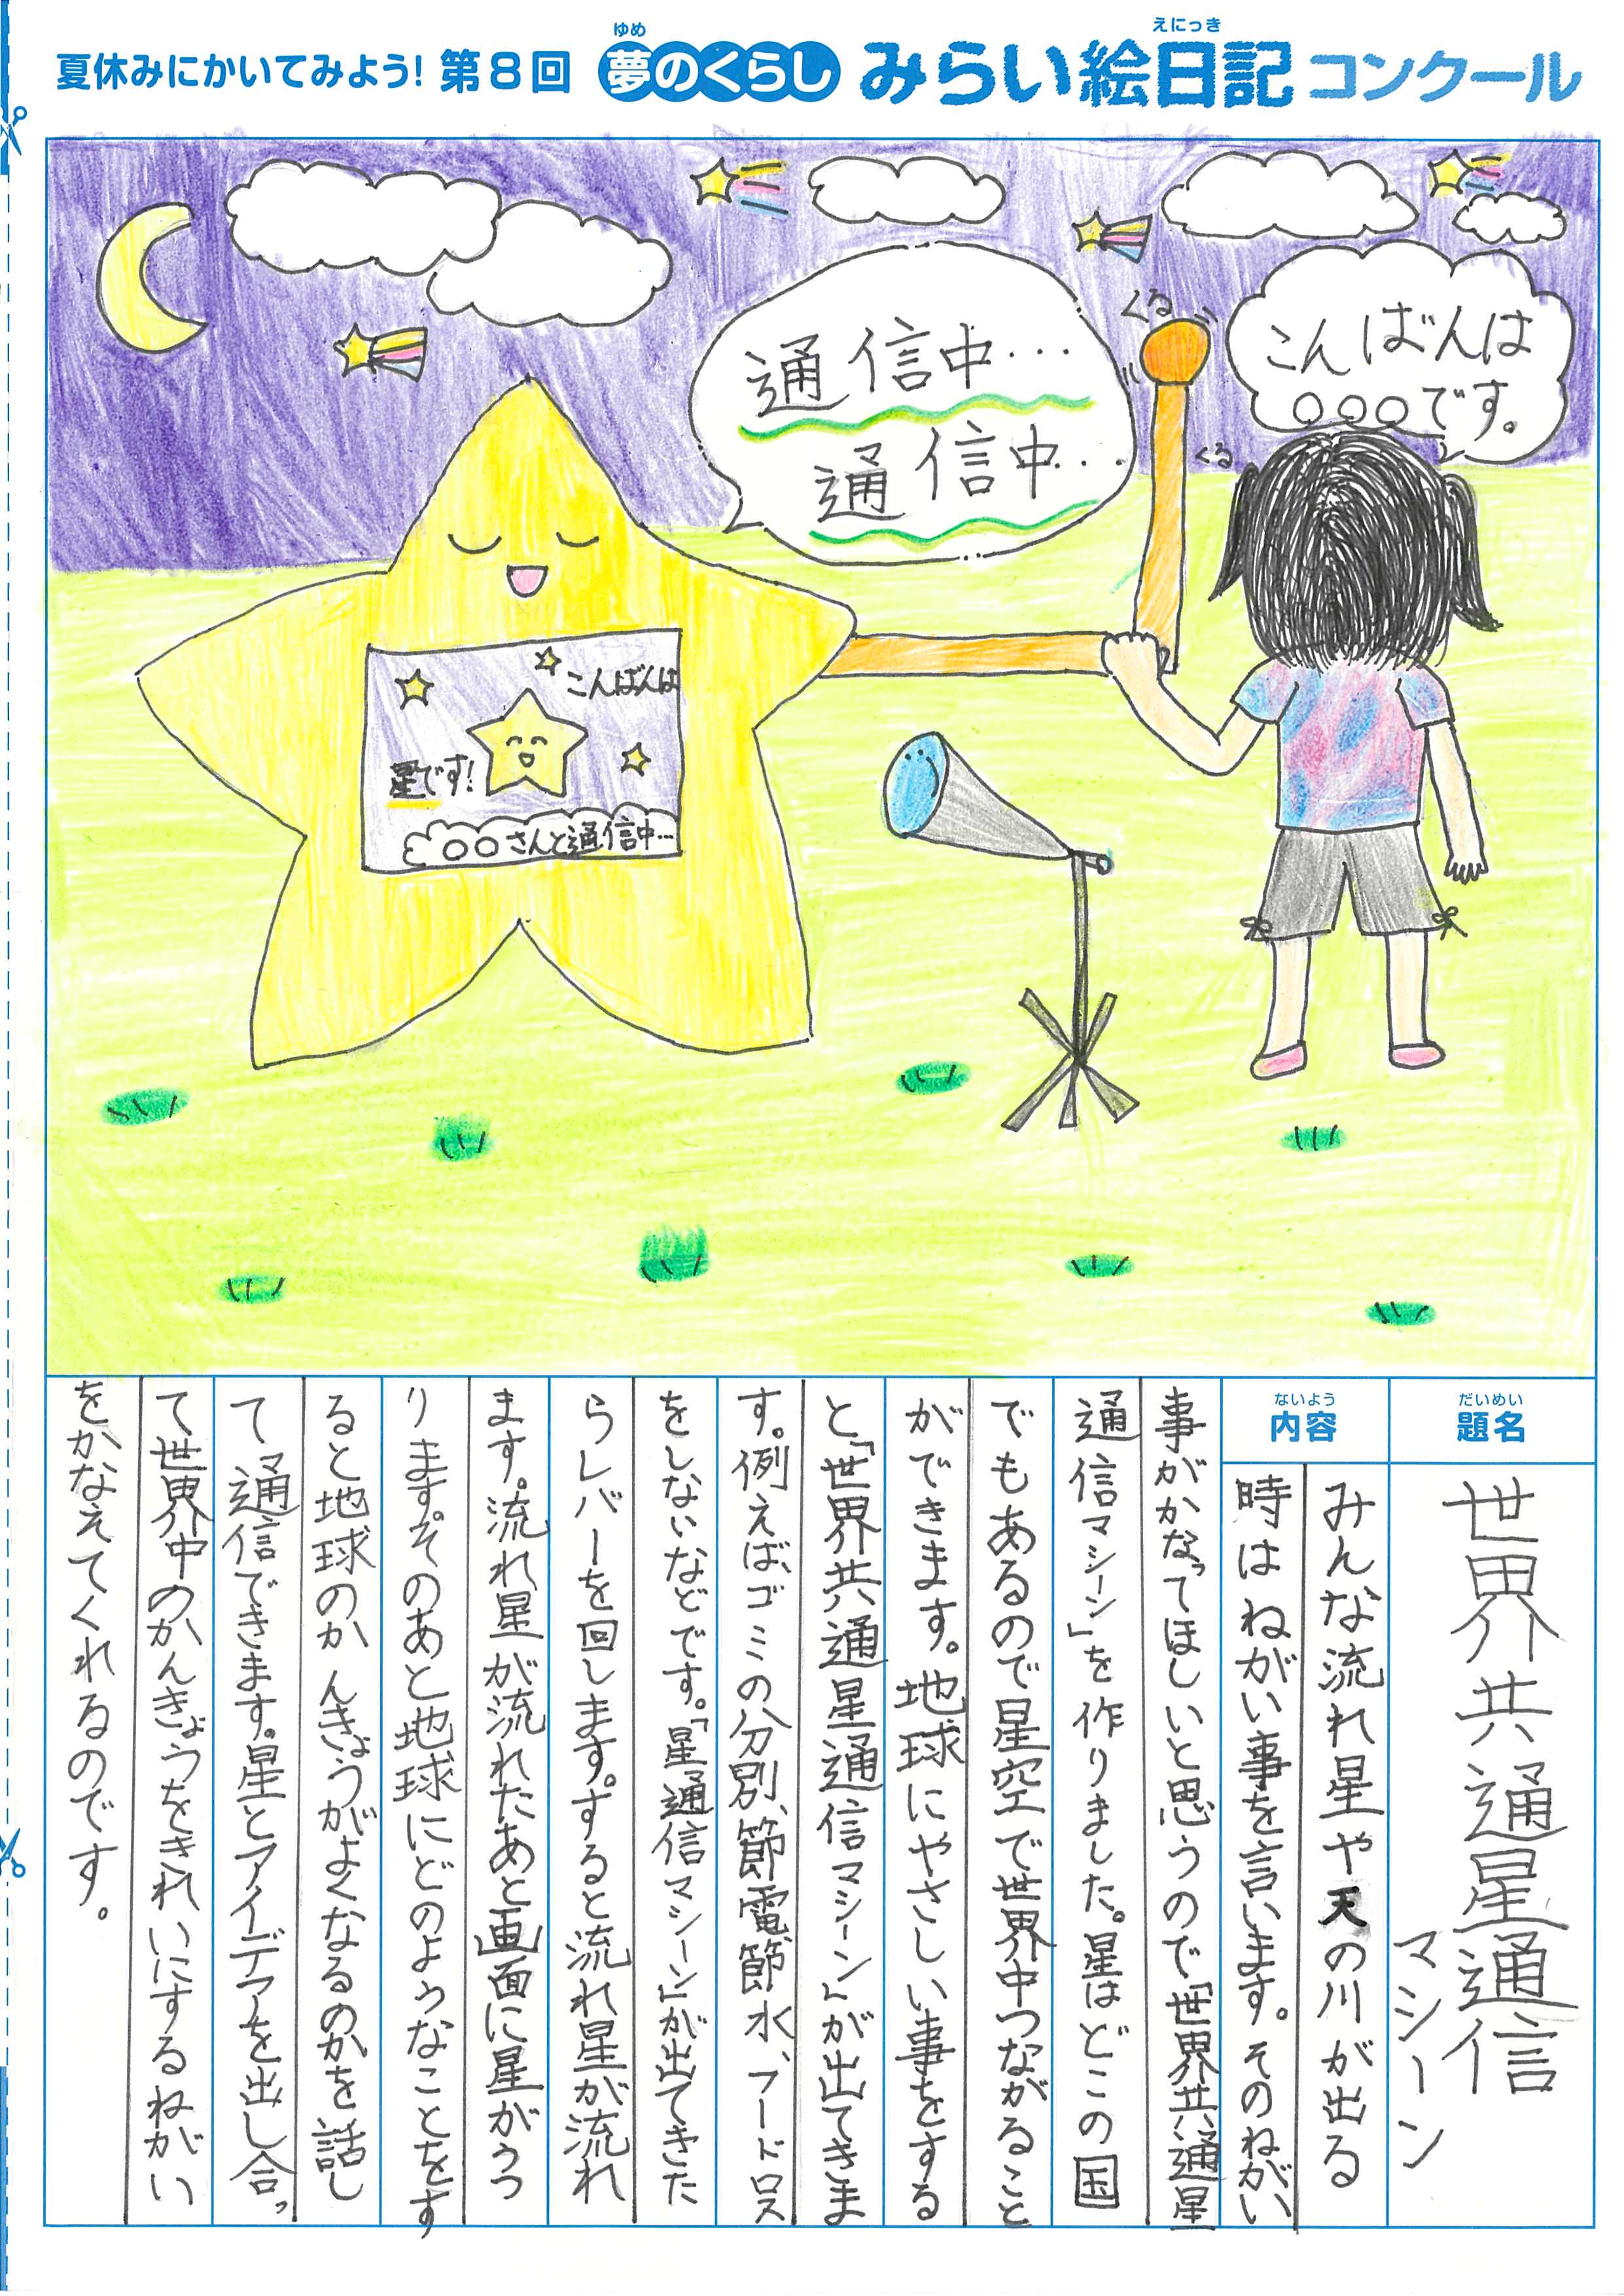 夏休みにかいてみよう! 第8回 夢のくらし みらい絵日記 コンクール
ゆめ
えにっき
こんばんは
○○○です。
くる
くる
通信中…
通信中…
こんばんは
星です!
○○さんと通信中…
だいめい
題名
世界共通星通信
マシーン
ないよう
内容
みんな流れ星や天の川が出る
時はねがい事を言います。そのねがい
事がかなってほしいと思うので「世界共通星
通信マシーン」を作りました。星はどこの国
でもあるので星空で世界中つながること
ができます。地球にやさしい事をする
と「世界共通星通信マシーン」が出てきま
す。例えば、ゴミの分別、節電、節水、フードロス
をしないなどです。「星通信マシーン」が出てきた
らレバーを回します。すると流れ星が流れ
ます。流れ星が流れたあと画面に星がうつ
ります。そのあと地球にどのようなことをす
ると地球のかんきょうがよくなるのかを話し
て通信できます。星とアイデアを出し合っ
て世界中のかんきょうをきれいにするねがい
をかなえてくれるのです。